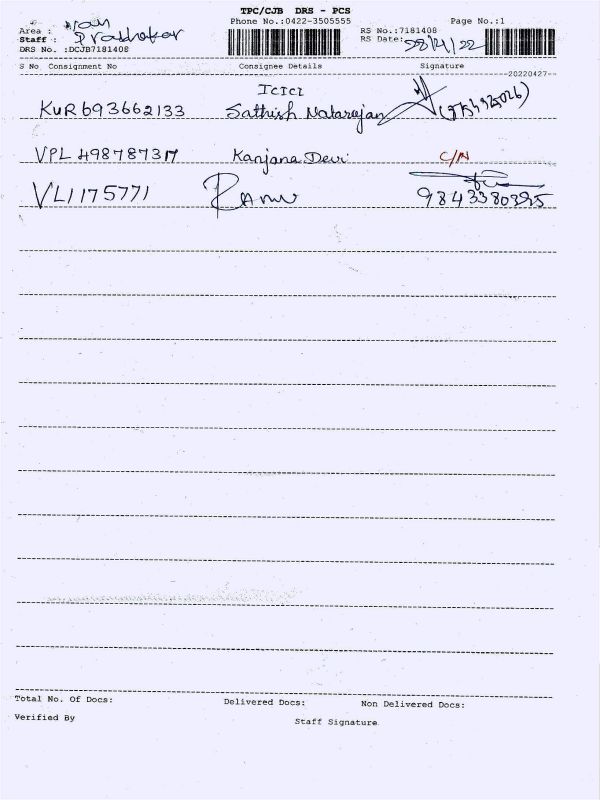 TPC/CJB DRS - PCS
Phone No.:0422-3505555
Page No.:1
Area :
Staff : Prabhakar
DRS No. :DCJB7181408
RS No.:7181408
RS Date: 28/4/22
S No Consignment No Consignee Details Signature
--20220427--
ICICI
KUR693662133 Sathish Natarajan
VPL498787317 Kanjana Devi C/N
VL1175771 Ramu 9843380395
Total No. Of Docs: Delivered Docs: Non Delivered Docs:
Verified By
Staff Signature